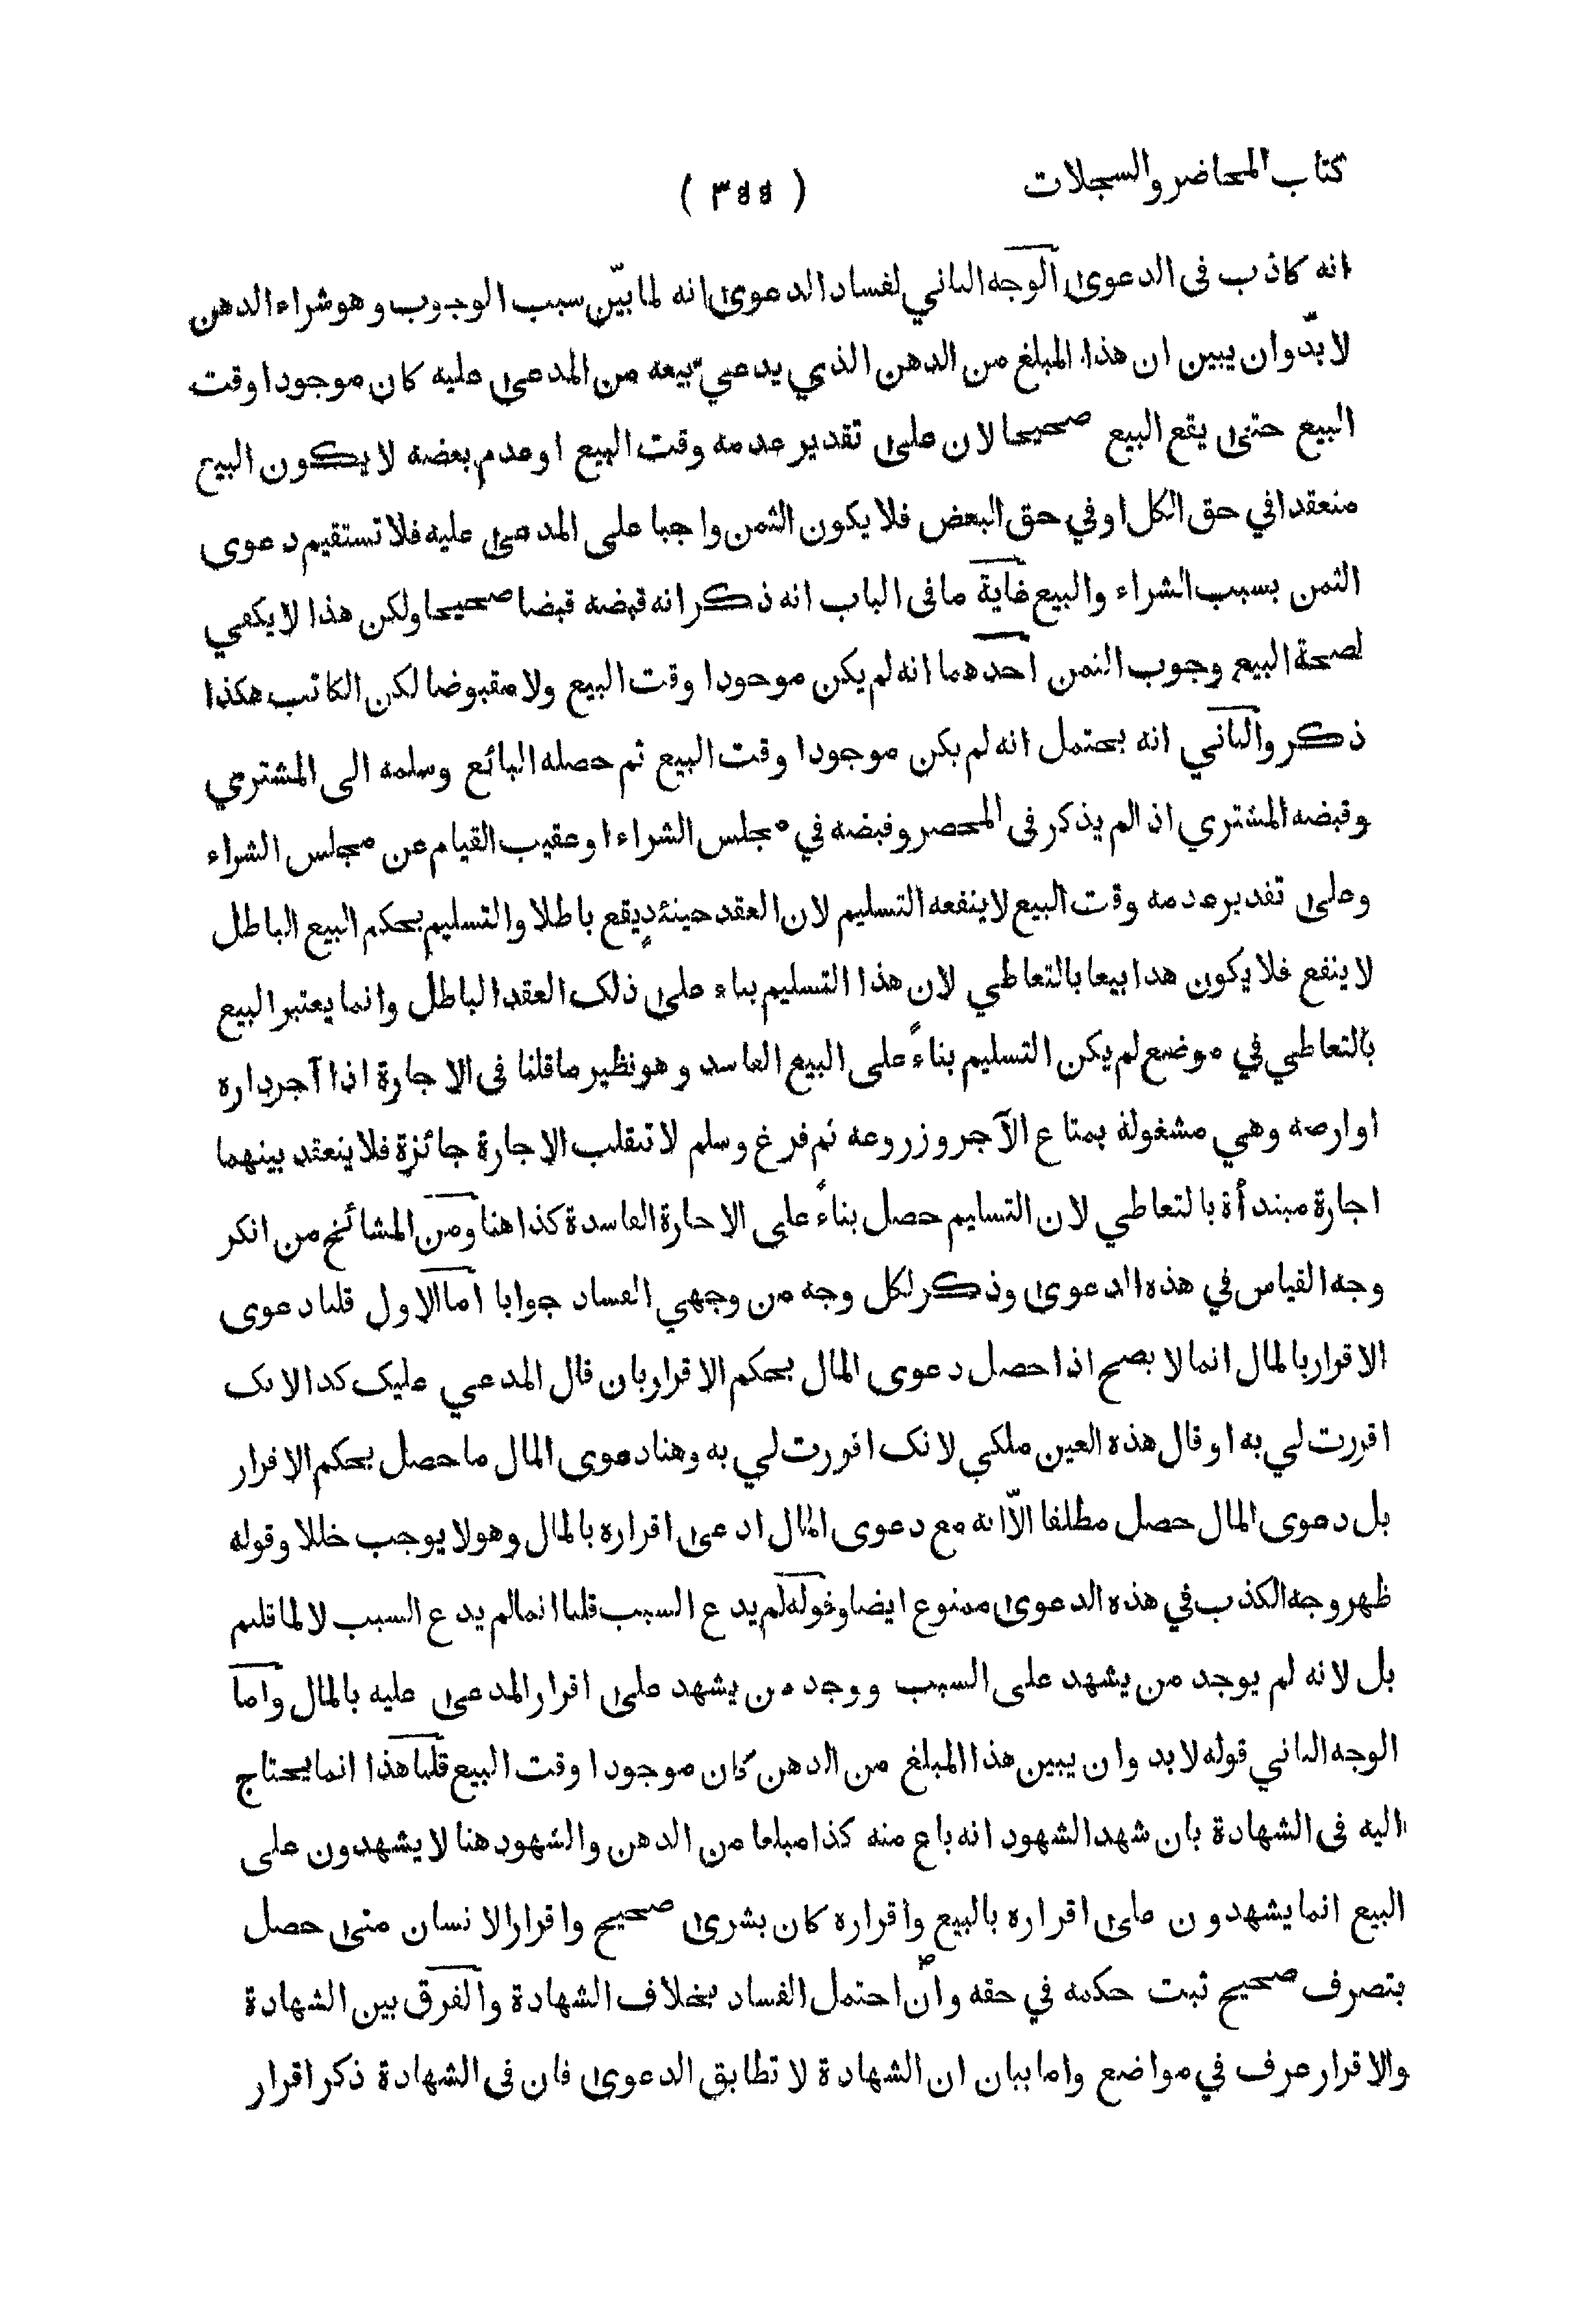 كتاب المحاضر والسجلات
( ٣٥٥ )
انه كاذب فى الدعوىٰ الوجه الثاني لفساد الدعوىٰ انه لما بيّن سبب الوجوب وهو شراء الدهن
لابدّ وان يبين ان هذا المبلغ من الدهن الذي يدعي بيعه من المدعىٰ عليه كان موجودا وقت
البيع حتىٰ يقع البيع صحيحا لان علىٰ تقدير عدمه وقت البيع او عدم بعضه لا يكون البيع
منعقدا في حق الكل او في حق البعض فلا يكون الثمن واجبا على المدعىٰ عليه فلا تستقيم دعوى
الثمن بسبب الشراء والبيع غاية ما فى الباب انه ذكر انه قبضه قبضا صحيحا ولكن هذا لا يكفي
لصحة البيع وجوب الثمن احدهما انه لم يكن موجودا وقت البيع ولا مقبوضا لكن الكاتب هكذا
ذكر والثاني انه يحتمل انه لم يكن موجودا وقت البيع ثم حصله البائع وسلمه الى المشتري
وقبضه المشتري اذ الم يذكر فى المحضر وقبضه في مجلس الشراء او عقيب القيام عن مجلس الشراء
وعلىٰ تقدير عدمه وقت البيع لا ينفعه التسليم لان العقد حينئذٍ يقع باطلا والتسليم بحكم البيع الباطل
لا ينفع فلا يكون هذا بيعا بالتعاطي لان هذا التسليم بناء علىٰ ذلك العقد الباطل وانما يعتبر البيع
بالتعاطي في موضع لم يكن التسليم بناءً على البيع الفاسد وهو نظير ما قلنا فى الاجارة اذا آجر داره
او ارضه وهي مشغولة بمتاع الآجر وزروعه ثم فرغ وسلم لا تنقلب الاجارة جائزة فلا ينعقد بينهما
اجارة مبتدأة بالتعاطي لان التسليم حصل بناءً على الاجارة الفاسدة كذا هنا ومن المشائخ من انكر
وجه القياس في هذه الدعوىٰ وذكر لكل وجه من وجهي الفساد جوابا اما الاول قلنا دعوى
الاقرار بالمال انما لا يصح اذا حصل دعوى المال بحكم الاقرار بان قال المدعي عليك كذا لانك
اقررت لي به او قال هذه العين ملكي لانك اقررت لي به وهنا دعوى المال ما حصل بحكم الاقرار
بل دعوى المال حصل مطلقا الاّ انه مع دعوى المال ادعىٰ اقراره بالمال وهو لا يوجب خللا وقوله
ظهر وجه الكذب في هذه الدعوىٰ ممنوع ايضا وقوله لم يدع السبب قلنا انما لم يدع السبب لا لما قلتم
بل لانه لم يوجد من يشهد على السبب ووجد من يشهد علىٰ اقرار المدعىٰ عليه بالمال واما
الوجه الثاني قوله لابد وان يبين هذا المبلغ من الدهن كان موجودا وقت البيع قلنا هذا انما يحتاج
اليه فى الشهادة بان شهد الشهود انه باع منه كذا مبلغا من الدهن والشهود هنا لا يشهدون على
البيع انما يشهدون علىٰ اقراره بالبيع واقراره كان بشرىٰ صحيح واقرار الانسان متىٰ حصل
بتصرف صحيح ثبت حكمه في حقه وان احتمل الفساد بخلاف الشهادة والفرق بين الشهادة
والاقرار عرف في مواضع واما بيان ان الشهادة لا تطابق الدعوىٰ فان فى الشهادة ذكر اقرار